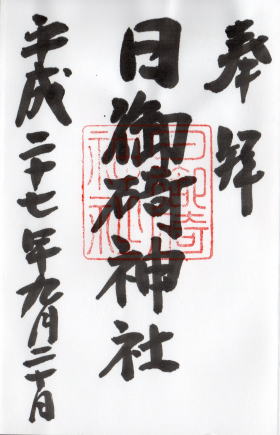 奉拝
日御碕神社
平成二十七年九月二十日